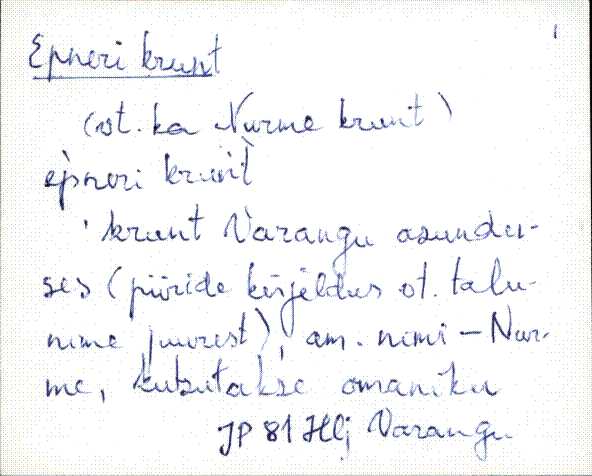 Epneri krunt
(vt. ka Nurme krunt)
èpneri krunìt
krunt Varangu asundu-
ses (piiride kirjeldus vt. talu-
nime juurest), am. nimi – Nur-
me, kutsutakse omaniku
JP 81 Hlj Varangu